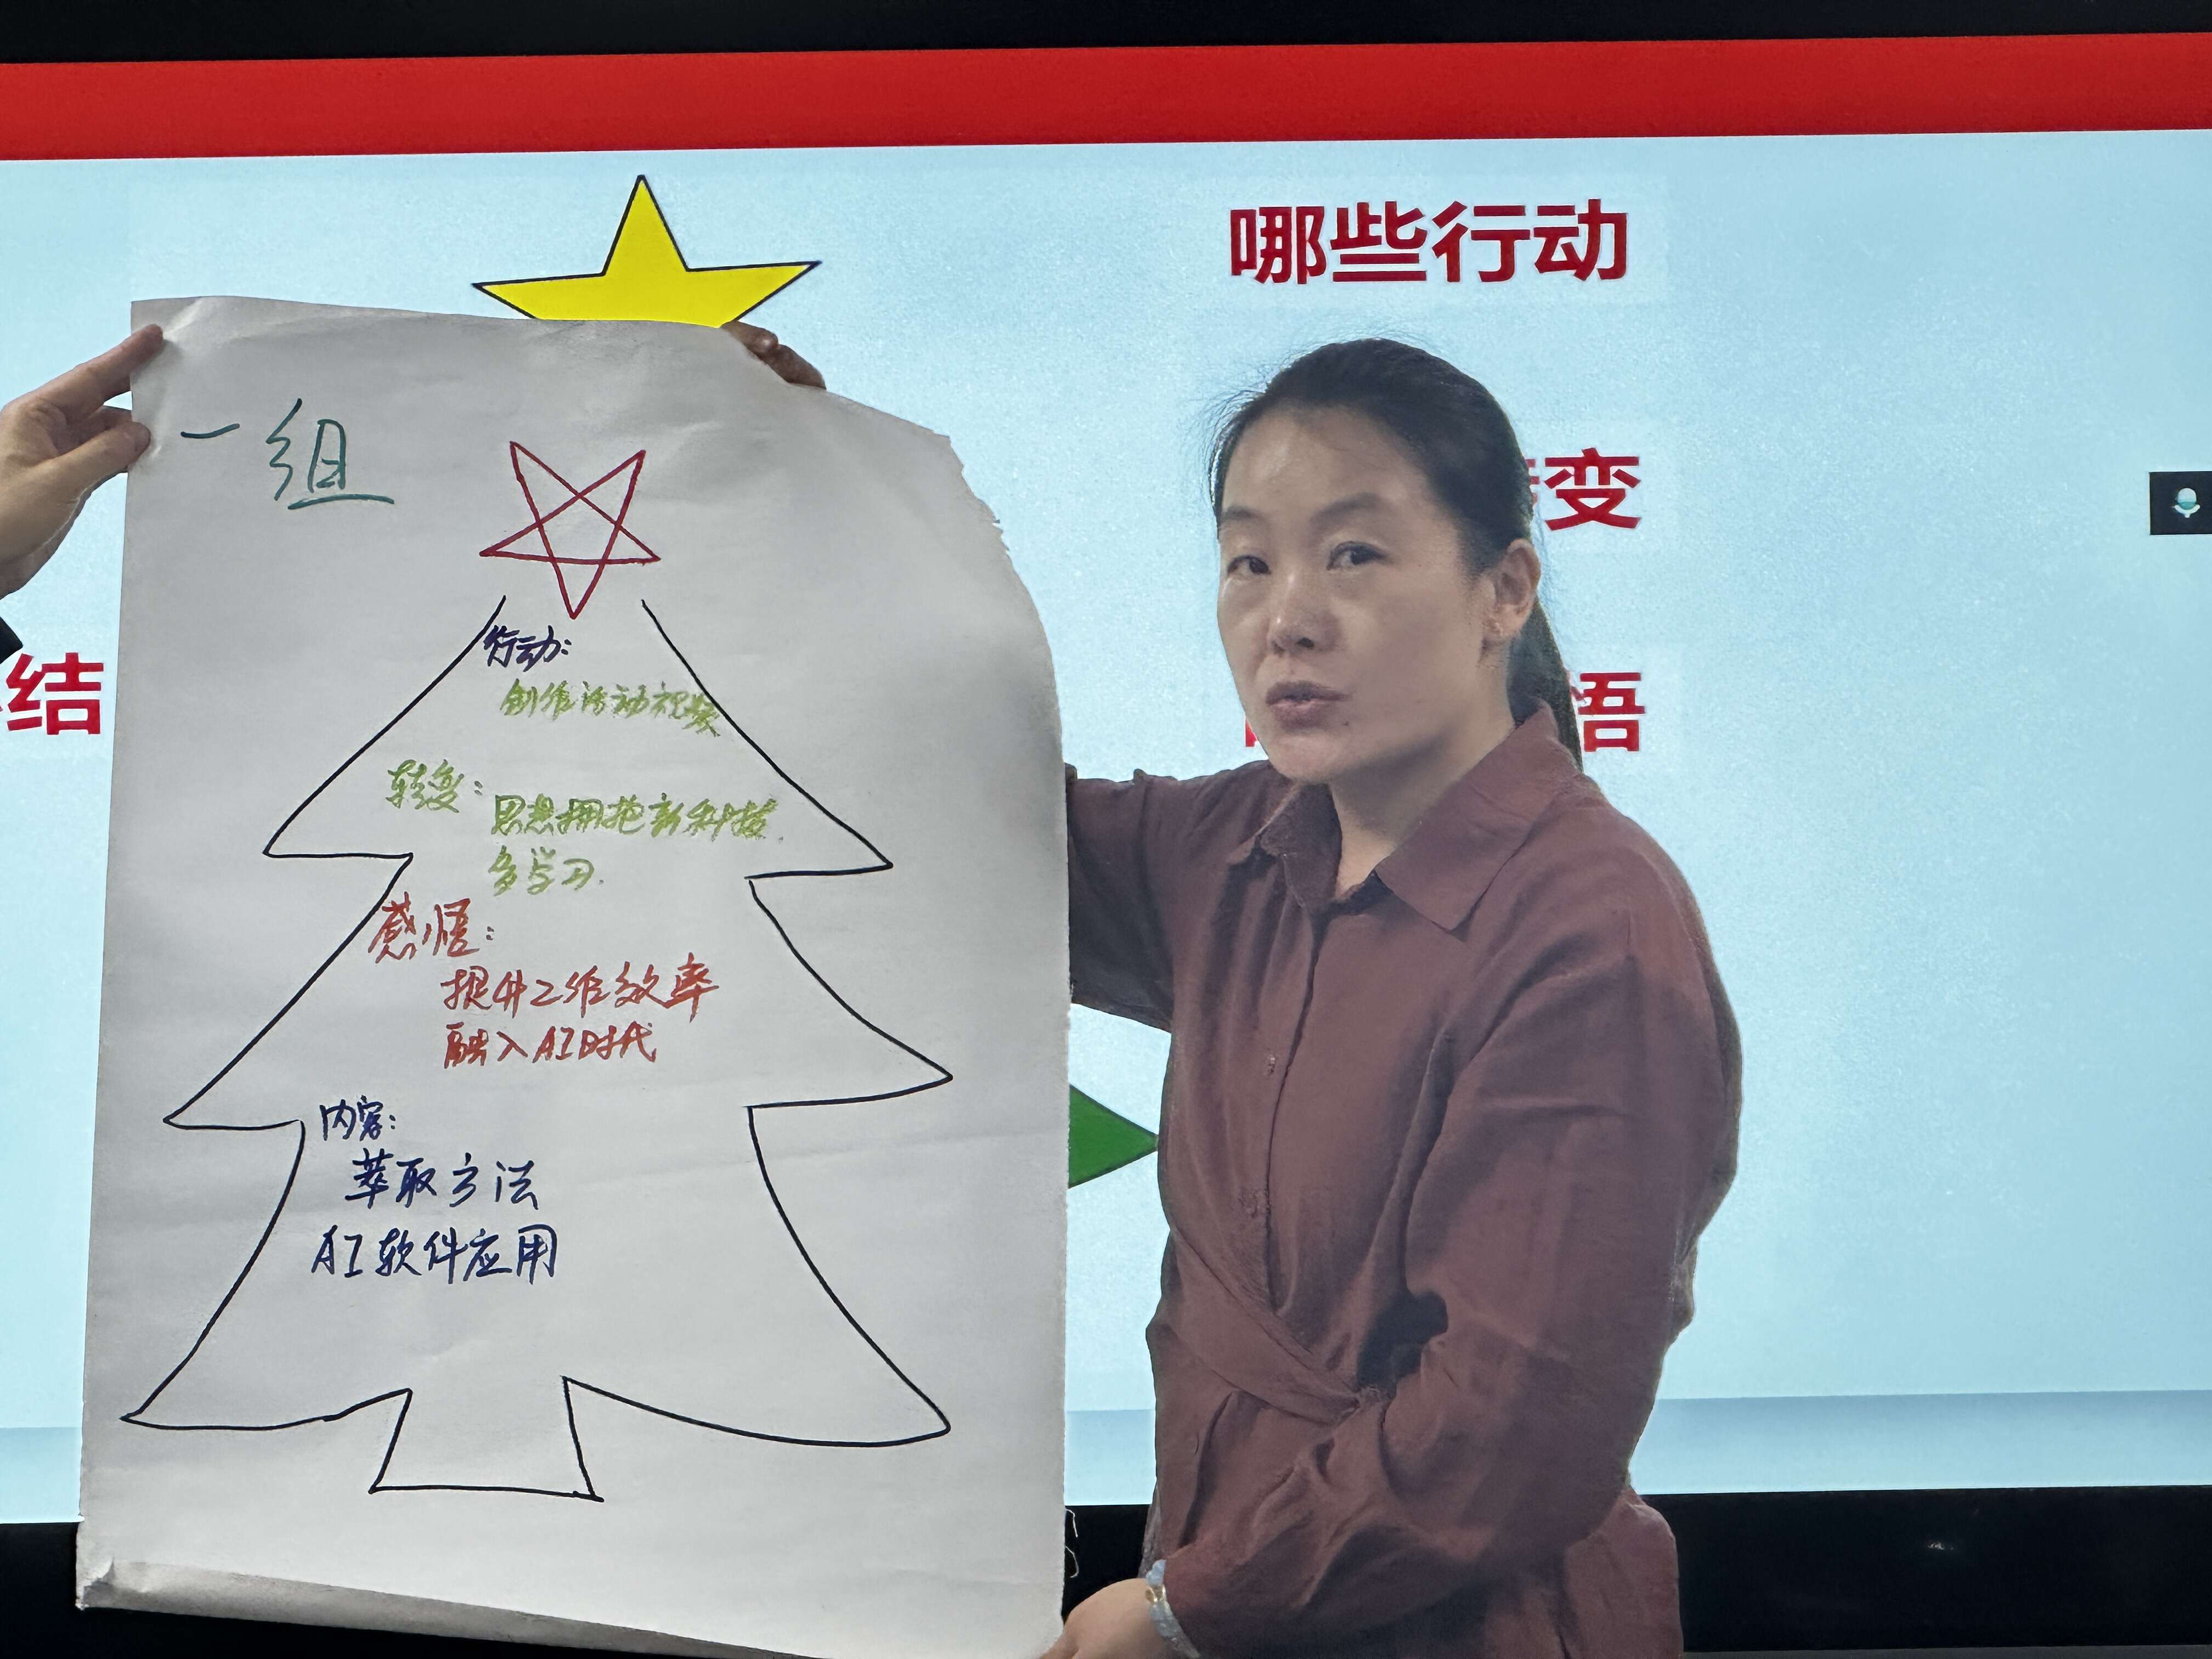 哪些行动
变
悟
结
一组
行动:
创作活动视频
转变:
思想拥抱新科技.
多学习.
感悟:
提升工作效率
融入AI时代
内容:
萃取方法
AI软件应用